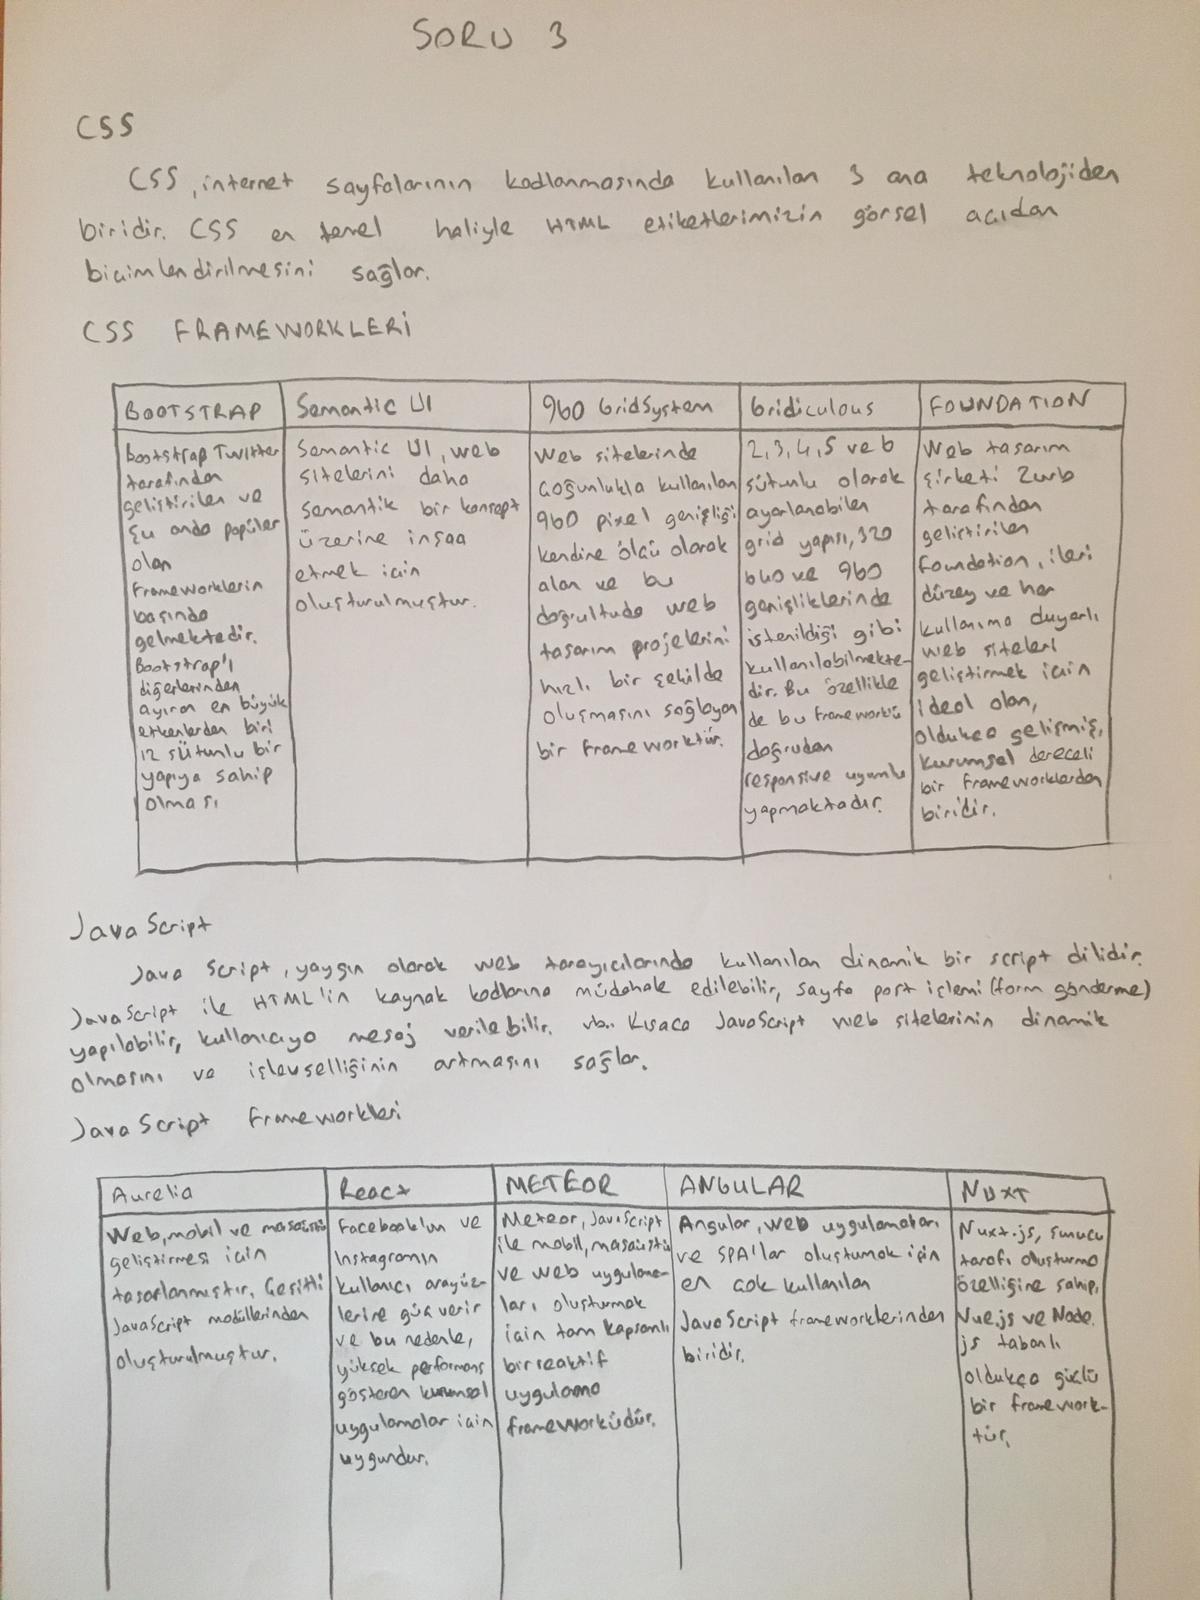 SORU 3
CSS
CSS, internet sayfalarının kodlanmasında kullanılan 3 ana teknolojiden
biridir. CSS en temel haliyle HTML etiketlerimizin görsel açıdan
biçimlendirilmesini sağlar.
CSS FRAMEWORKLERİ
BOOTSTRAP
Bootstrap Twitter
tarafından
geliştirilen ve
şu anda popüler
olan
Frameworklerin
başında
gelmektedir.
Bootstrap'ı
diğerlerinden
ayıran en büyük
etkenlerden biri
12 sütunlu bir
yapıya sahip
olması
Semantic UI
Semantic UI, web
sitelerini daha
semantik bir konsept
üzerine inşaa
etmek için
oluşturulmuştur.
960 GridSystem
Web sitelerinde
çoğunlukla kullanılan
960 pixel genişliği
kendine ölçü olarak
alan ve bu
doğrultuda web
tasarım projelerini
hızlı bir şekilde
oluşmasını sağlayan
bir frameworktür.
Gridiculous
2, 3, 4, 5 ve 6
sütunlu olarak
ayarlanabilen
grid yapısı, 320
640 ve 960
genişliklerinde
istenildiği gibi
kullanılabilmekte-
dir. Bu özellikle
de bu frameworkü
doğrudan
responsive uyumlu
yapmaktadır.
FOUNDATION
Web tasarım
şirketi Zurb
tarafından
geliştirilen
Foundation, ileri
düzey ve her
kullanıma duyarlı
web siteleri
geliştirmek için
ideal olan,
oldukça gelişmiş,
kurumsal dereceli
bir frameworklerden
biridir.
JavaScript
Java Script, yaygın olarak web tarayıcılarında kullanılan dinamik bir script dilidir.
JavaScript ile HTML'in kaynak kodlarına müdahale edilebilir, sayfa post işlemi (form gönderme)
yapılabilir, kullanıcıya mesaj verilebilir. vb.. Kısaca JavaScript web sitelerinin dinamik
olmasını ve işlevselliğinin artmasını sağlar.
JavaScript Frameworkleri
Aurelia
Web, mobil ve masaüstü
geliştirmesi için
tasarlanmıştır. Çeşitli
JavaScript modüllerinden
oluşturulmuştur.
React
Facebook'un ve
Instagramın
kullanıcı arayüz-
lerine güç verir
ve bu nedenle,
yüksek performans
gösteren kurumsal
uygulamalar için
uygundur.
METEOR
Meteor, JavaScript
ile mobil, masaüstü
ve web uygulama-
ları oluşturmak
için tam kapsamlı
bir reaktif
uygulama
frameworküdür.
ANGULAR
Angular, web uygulamaları
ve SPA'lar oluştumak için
en çok kullanılan
JavaScript frameworklerinden
biridir.
NUXT
Nuxt.js, sunucu
tarafı oluşturma
özelliğine sahip,
Vue.js ve Node.
js tabanlı
oldukça güçlü
bir framework-
tür.